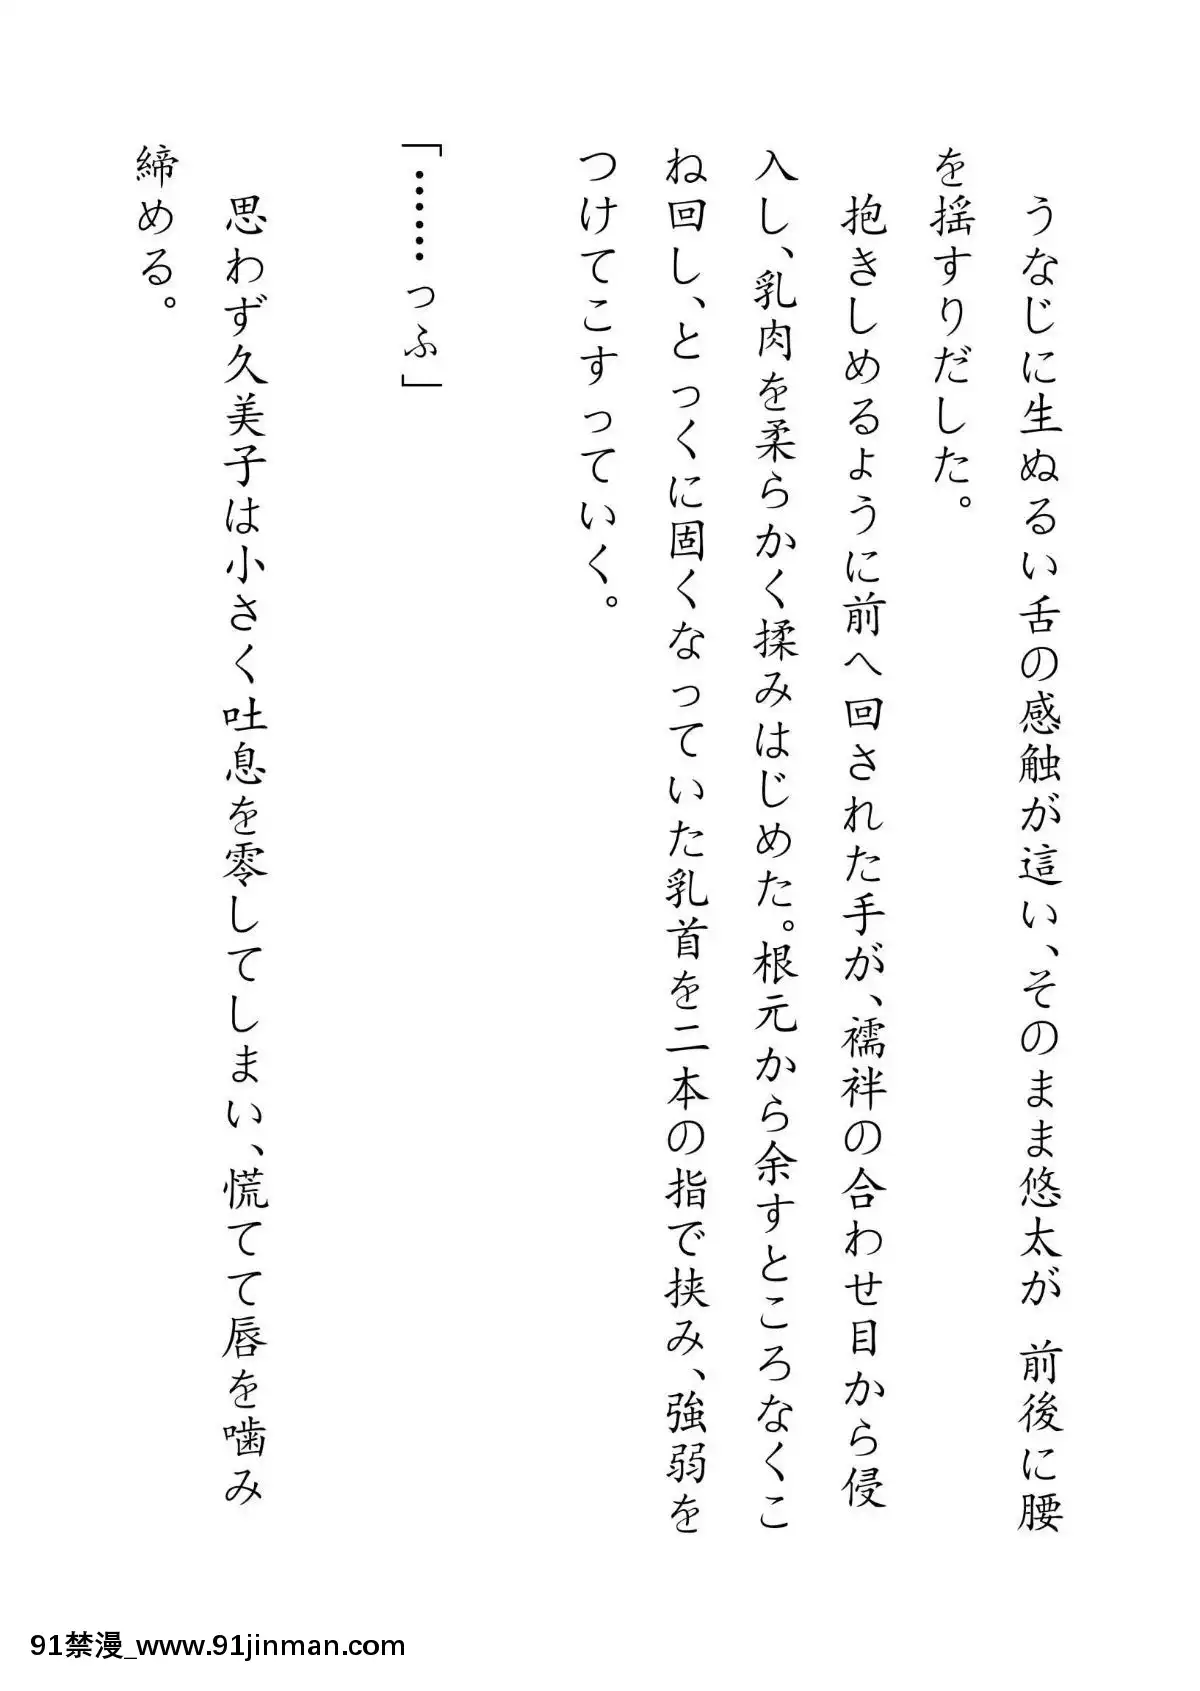 うなじに生ぬるい舌の感触が這い、そのまま悠太が 前後に腰
を揺すりだした。
抱きしめるように前へ回された手が、襦袢の合わせ目から侵
入し、乳肉を柔らかく揉みはじめた。根元から余すところなくこ
ね回し、とっくに固くなっていた乳首を二本の指で挟み、強弱を
つけてこすっていく。
「……っふ」
思わず久美子は小さく吐息を零してしまい、慌てて唇を噛み
締める。
91禁漫_www.91jinman.com